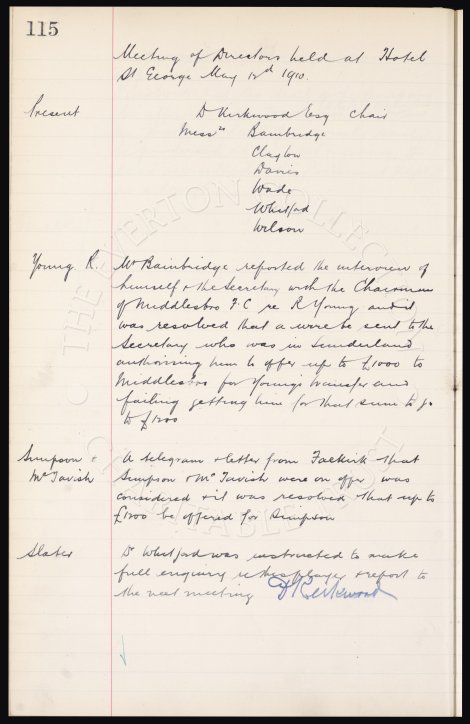 115
Meeting of Directors held at Hotel
St George May 12th 1910.
Present
D Kirkwood Esq Chair
Messrs Bainbridge
Clayton
Davies
Wade
Whitford
Wilson
Young R. Mr Bainbridge reported the interview of
himself + the Secretary with the Chairman
of Middlesbro F.C re R Young and it
was resolved that a wire be sent to the
Secretary who was in Sunderland
authorising him to offer up to £1000 to
Middlesbro for Young's transfer and
failing getting him for that sum to go
to £1200
Simpson + A telegram + letter from Falkirk that
McTavish Simpson + McTavish were on offer was
considered + it was resolved that up to
£1200 be offered for Simpson
Slater Dr Whitford was instructed to make
full enquiry re this player + report to
the next meeting D Kirkwood
© THE EVERTON COLLECTION CHARITABLE TRUST